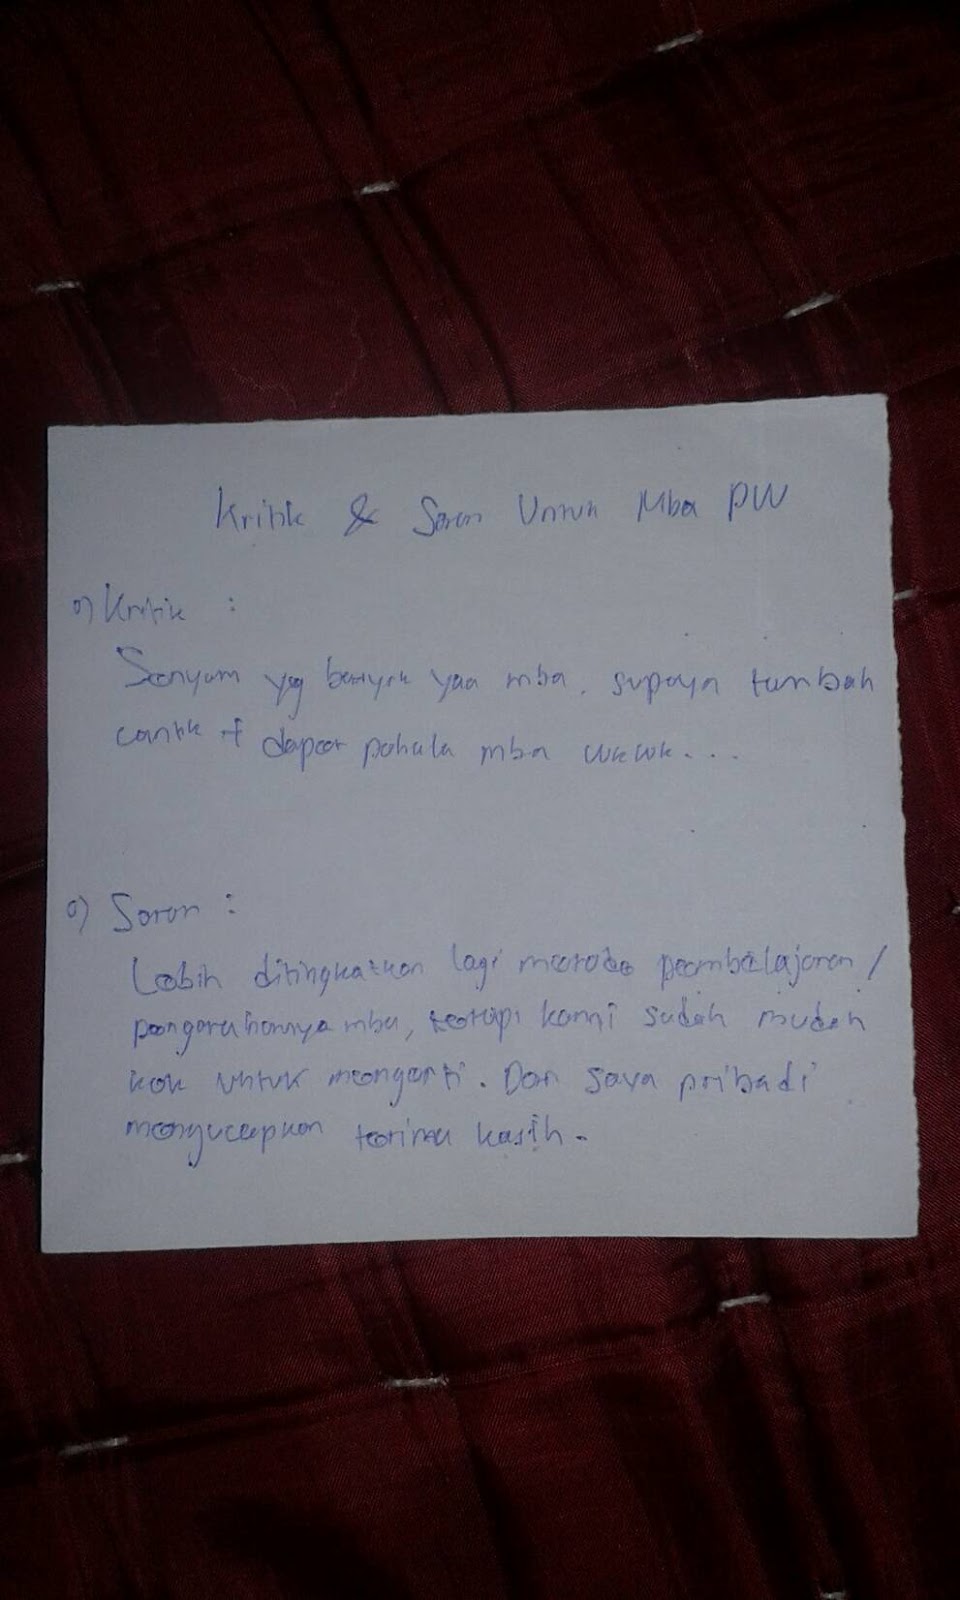 Kritik & Saran Untuk Mba PW
o) Kritik :
Senyum yg banyak yaa mba, supaya tambah
cantik + dapat pahala mba wkwk...
o) Saran :
Lebih ditingkatkan lagi metode pembelajaran /
pengarahannya mba, tetapi kami sudah mudah
kok untuk mengerti. Dan saya pribadi
mengucapkan terima kasih.